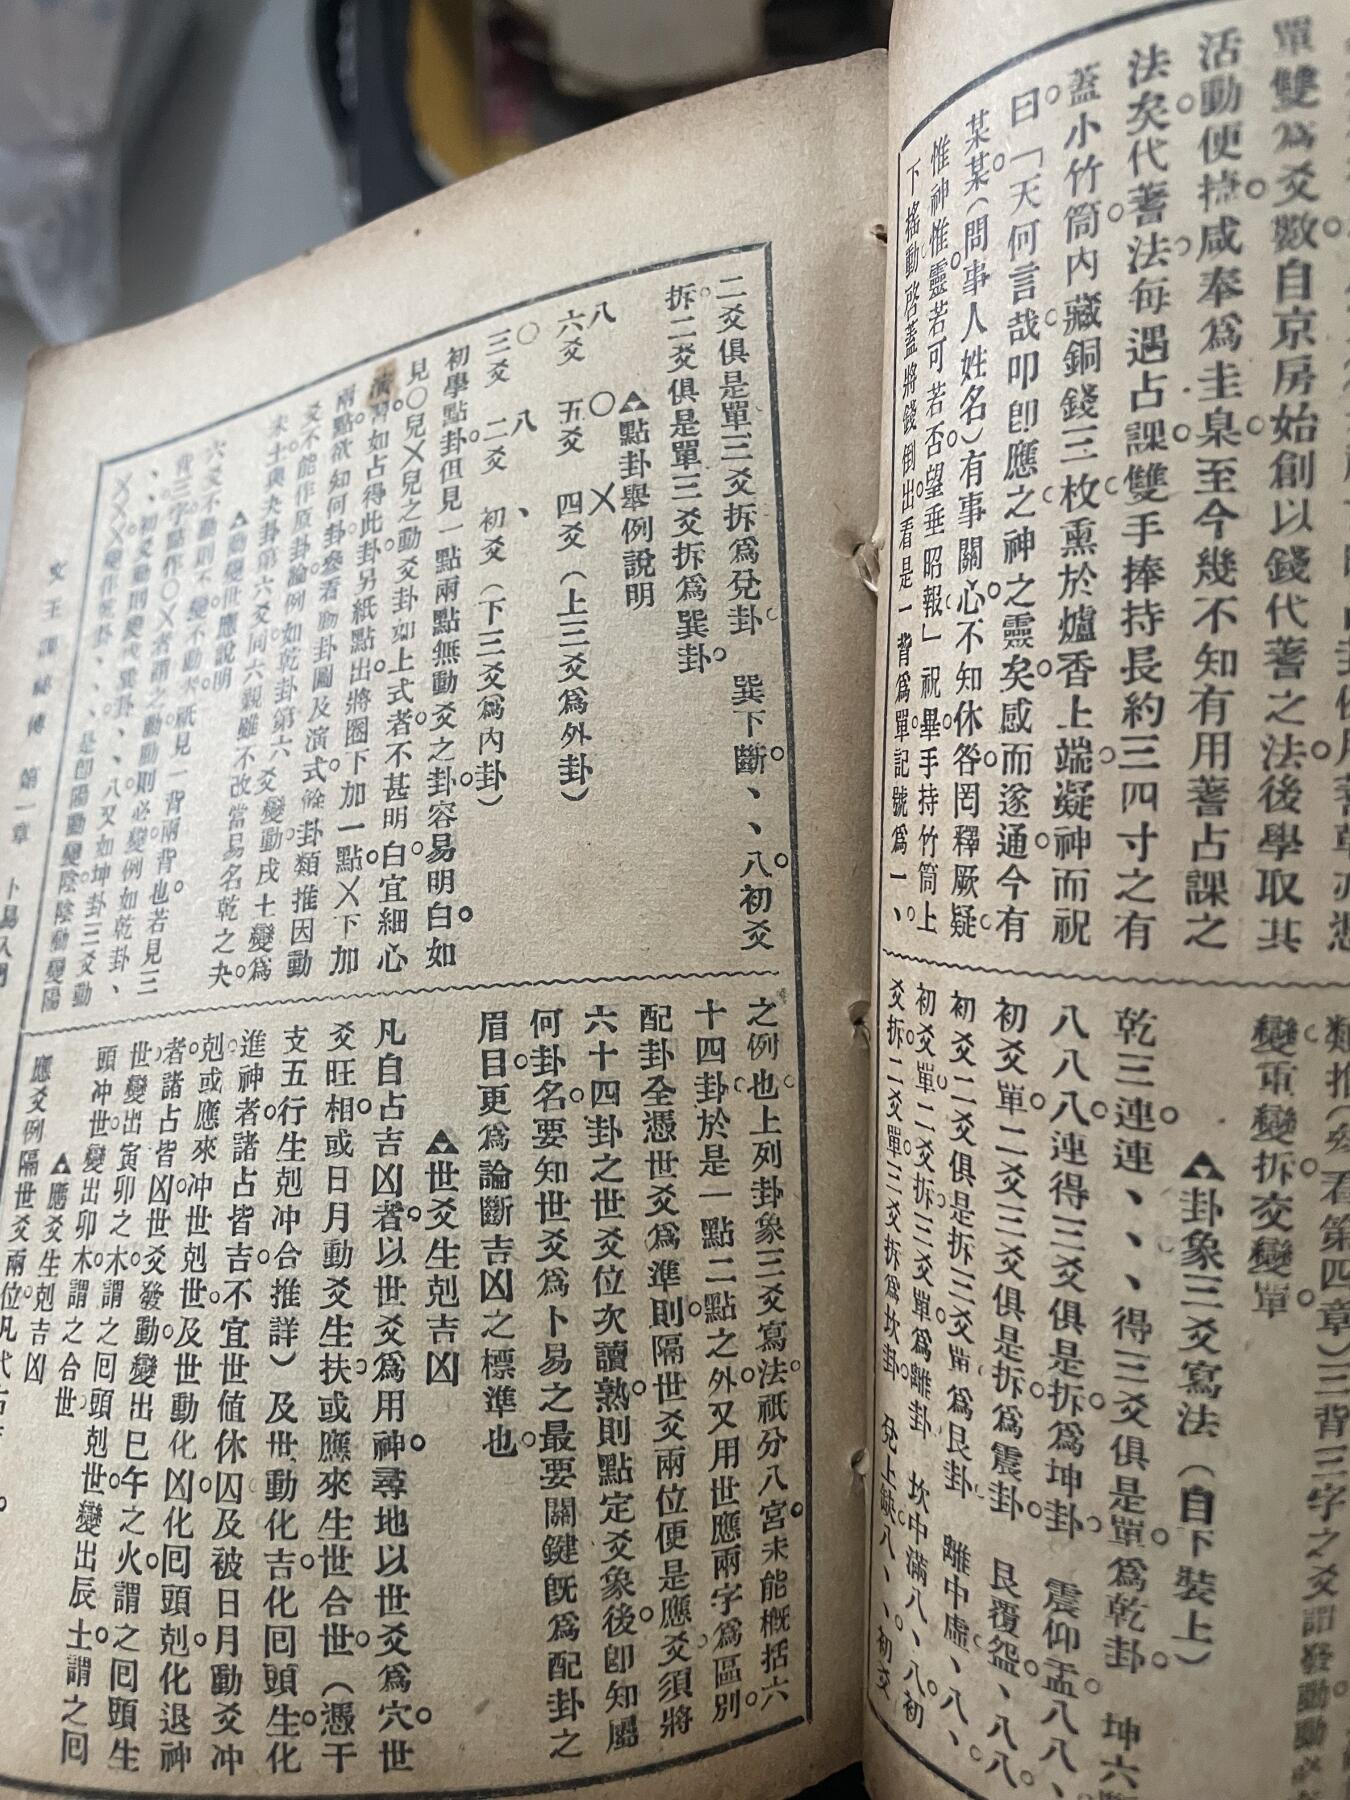 單雙爲爻數自京房始創以錢代蓍之法後學取其
活動便捷咸奉爲圭臬至今幾不知有用蓍占課之
法矣代蓍法每遇占課雙手捧持長約三四寸之有
蓋小竹筒內藏銅錢三枚熏於爐香上端凝神而祝
曰「天何言哉叩卽應之神之靈矣感而遂通今有
某某(問事人姓名)有事關心不知休咎罔釋厥疑
惟神惟靈若可若否望垂昭報」祝畢手持竹筒上
下搖動啓蓋將錢倒出看是一背爲單記號爲一、
變重變拆交變單
▲卦象三爻寫法(自下裝上)
乾三連連、、、得三爻俱是單爲乾卦 坤六
八八八連得三爻俱是拆爲坤卦 震仰盂八八、
初爻單二爻三爻俱是拆爲震卦 艮覆盌、八八
初爻二爻俱是拆三爻單爲艮卦 離中虛、八、
初爻單二爻拆三爻單爲離卦 坎中滿八、八初
爻拆二爻單三爻拆爲坎卦 兌上缺八、、初爻
二爻俱是單三爻拆爲兌卦 巽下斷、、八初爻
拆二爻俱是單三爻拆爲巽卦
▲點卦舉例說明
八 〇 乂
六爻 五爻 四爻(上三爻爲外卦)
〇 八 、
三爻 二爻 初爻(下三爻爲內卦)
初學點卦但見一點兩點無動爻之卦容易明白如
見〇兒乂兒之動爻卦如上式者不甚明白宜細心
演習如占得此卦另紙點出將圈下加一點乂下加
兩點欲知何卦參看卦圖及演式餘卦類推因動
爻不能作原卦論例如乾卦第六爻變動戌土變爲
未土與夬卦第六爻同六親雖不改當易名乾之夬
▲動變世應說明
六爻不動則不變不動夫祇見一背兩背也若見三
背三字點作〇乂者謂之動動則必變例如乾卦、
、、初爻動則變成巽卦、、八又如坤卦三爻動
之例也上列卦象三爻寫法祇分八宮未能槪括六
十四卦於是一點二點之外又用世應兩字爲區別
配卦全憑世爻爲準則隔世爻兩位便是應爻須將
六十四卦之世爻位次讀熟則點定爻象後卽知屬
何卦名要知世爻爲卜易之最要關鍵旣爲配卦之
眉目更爲論斷吉凶之標準也
▲世爻生剋吉凶
凡自占吉凶者以世爻爲用神尋地以世爻爲穴世
爻旺相或日月動爻生扶或應來生世合世(憑干
支五行生剋冲合推詳)及世動化吉化回頭生化
進神者諸占皆吉不宜世値休囚及被日月動爻冲
剋或應來冲世剋世及世動化凶化回頭剋化退神
者諸占皆凶世爻發動變出巳午之火謂之回頭生
世變出寅卯之木謂之回頭剋世變出辰土謂之回
頭冲世變出卯木謂之合世
▲應爻生剋吉凶
應爻例隔世爻兩位凡代占
文王課祕傳 第一章 卜易入門